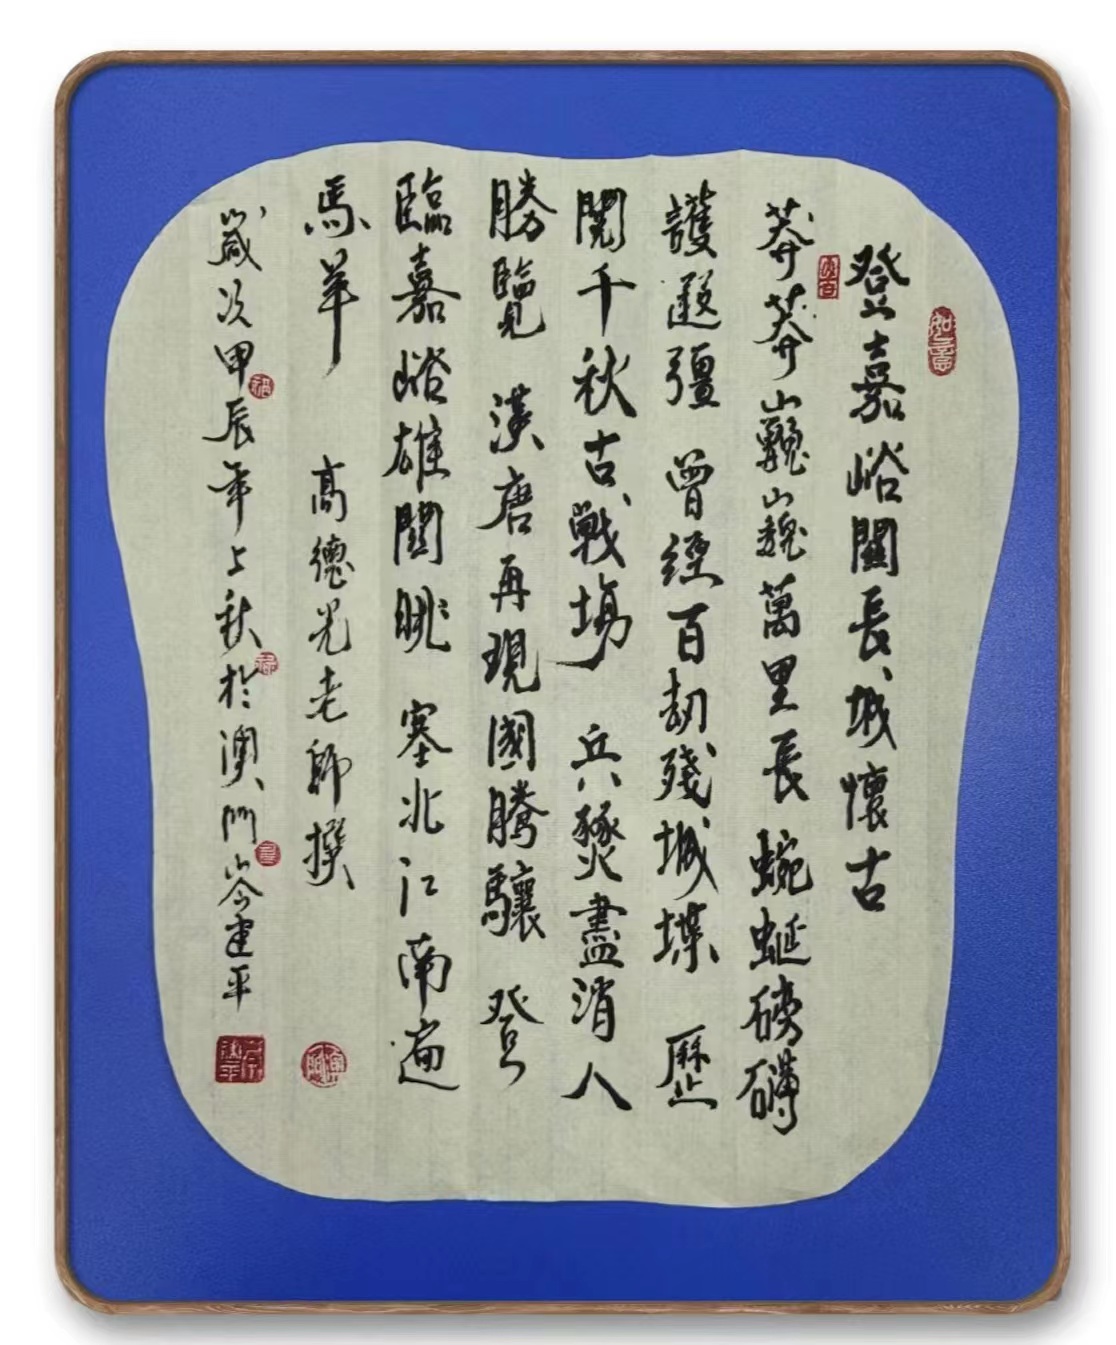 登嘉峪關長城懷古
莽莽巍巍萬里長 蜿蜒磅礴
護遐彊 曾經百劫殘城堞 歷
閱千秋古戰場 兵燹盡消人
勝覽 漢唐再現國騰驤 登
臨嘉峪雄關眺 塞北江南遍
馬羊 高德光老師撰
歲次甲辰年上秋於澳門岺建平
如意